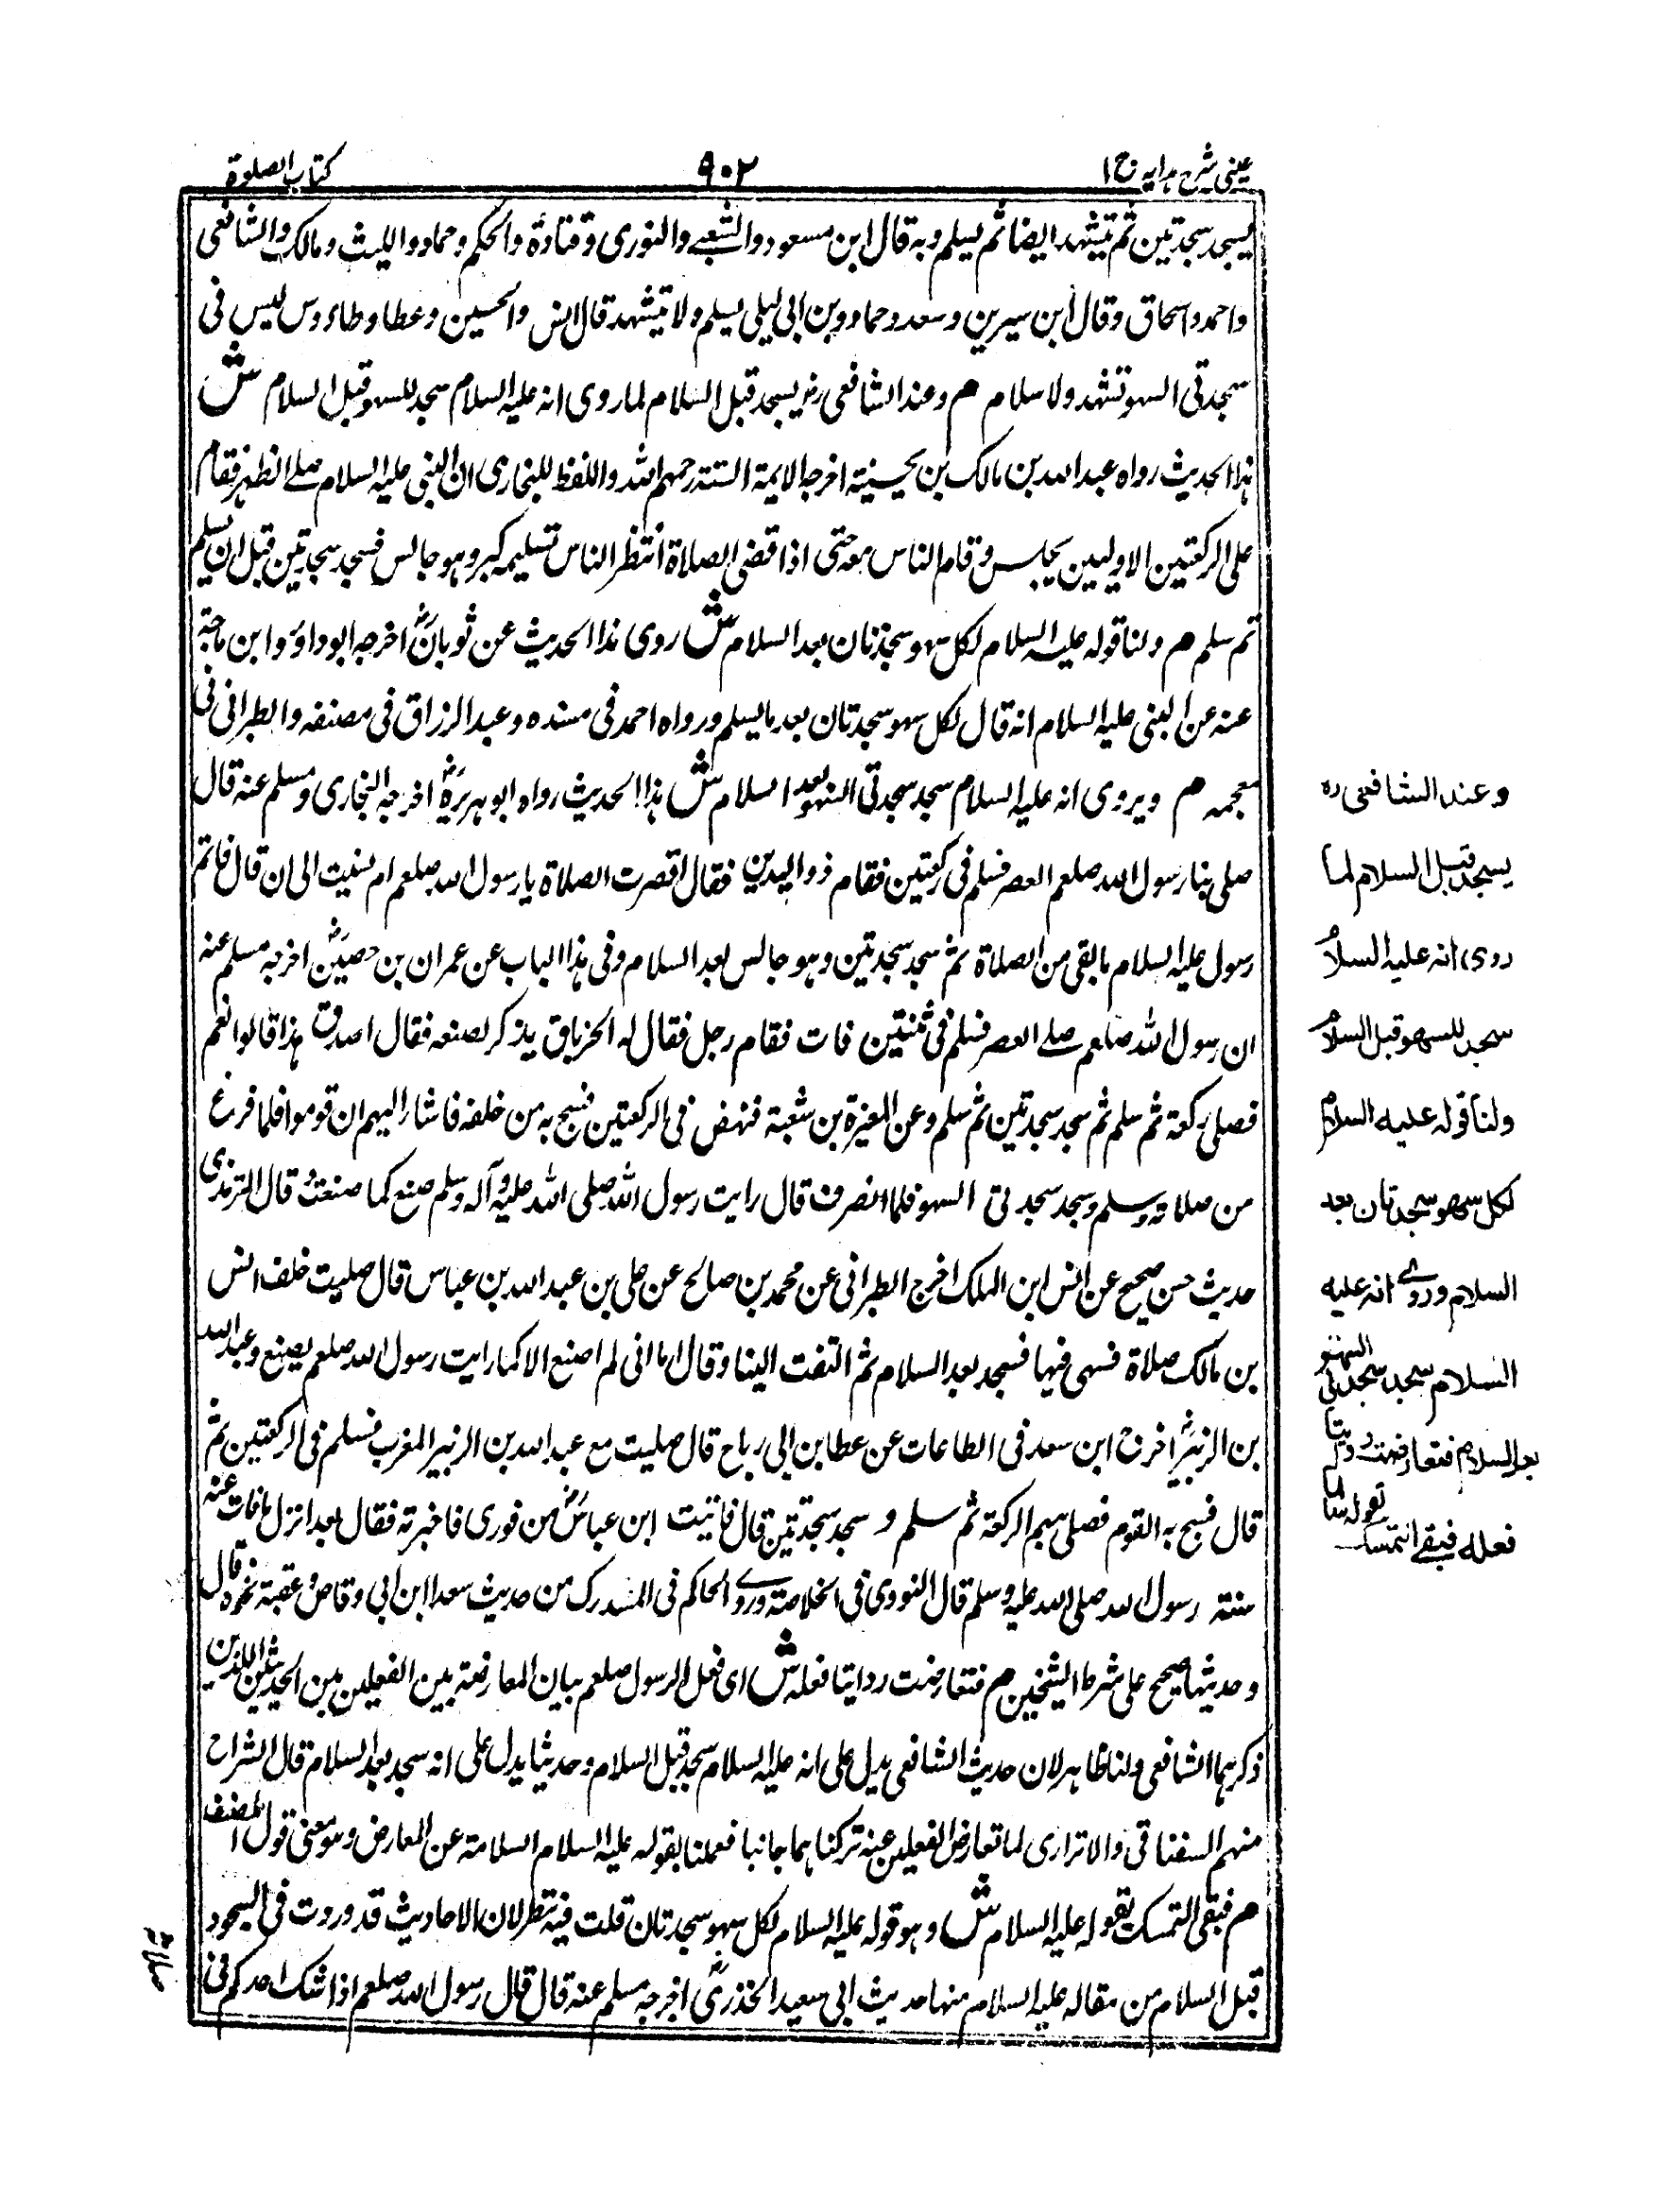 عینی شرح ہدایہ ج ۱
۹۰۲
کتاب الصلوة
یسجد سجدتین ثم یتشہد ایضا ثم یسلم وبہ قال ابن مسعود والشعبے والثوری وقتادة والحکم وحماد واللیث ومالک والشافعی
واحمد واسحاق وقال ابن سیرین وسعد وحماد وبن ابی لیلی یسلم ولا یتشہد قال انس والحسین وعطا وطاءوس لیس فی
سجدتی السہو تشہد ولا سلام ھم وعند الشافعی رہ یسجد قبل السلام لما روی انہ علیہ السلام سجد للسہو قبل السلام ش
ہذا الحدیث رواہ عبد اللہ بن مالک بن بحینیة اخرجہ الایمة الستة رحمہم اللہ واللفظ للبخاری ان النبی علیہ السلام صلے الظہر فقام
علی الرکعتین الاولیین یجلس وقام الناس معہ حتی اذا قضی الصلاة انتظر الناس تسلیمہ کبر وہو جالس فسجد سجدتین قبل ان یسلم
ثم سلم ھم ولنا قولہ علیہ السلام لکل سہو سجدتان بعد السلام ش روی ہذا الحدیث عن ثوبانؓ اخرجہ ابو داؤد وابن ماجة
عنہ عن النبی علیہ السلام انہ قال لکل سہو سجدتان بعد ما یسلم ورواہ احمد فی مسندہ وعبد الرزاق فی مصنفہ والطبرانی فی
معجمہ ھم ویروی انہ علیہ السلام سجد سجدتی السہو بعد السلام ش ہذا الحدیث رواہ ابو ہریرةؓ اخرجہ البخاری ومسلم عنہ قال
صلی بنا رسول اللہ صلعم العصر فسلم فی رکعتین فقام ذو الیدین فقال اقصرت الصلاة یا رسول اللہ صلعم ام نسیت الی ان قال فاتم
رسول علیہ السلام ما بقی من الصلاة ثم سجد سجدتین وہو جالس بعد السلام وفی ہذا الباب عن عمران بن حصینؓ اخرجہ مسلم عنہ
ان رسول اللہ صلعم صلے العصر فسلم فی ثنتین فات فقام رجل فقال لہ الخرباق یذکر لصنعہ فقال اصدق ہذا قالوا نعم
فصلی رکعة ثم سلم ثم سجد سجدتین ثم سلم وعن المغیرة بن شعبة فنہض فی الرکعتین فسبح بہ من خلفہ فاشار الیہم ان قوموا فلما فرغ
من صلاتہ وسلم وسجد سجدتی السہو فلما انصرف قال رایت رسول اللہ صلی اللہ علیہ وآلہ وسلم صنع کما صنعت وقال الترمذی
حدیث حسن صحیح عن انس ابن الملک اخرج الطبرانی عن محمد بن صالح عن علی بن عبد اللہ بن عباس قال صلیت خلف انس
بن مالک صلاة فسہی فیہا فسجد بعد السلام ثم التفت الینا وقال اما انی لم اصنع الا کما رایت رسول اللہ صلعم یصنع وعبد اللہ
بن الزبیرؓ اخرج ابن سعد فی الطاعات عن عطا بن ابی رباح قال صلیت مع عبد اللہ بن الزبیر المغرب فسلم فی الرکعتین ثم
قال فسبح بہ القوم فصلی بہم الرکعة ثم سلم و سجد سجدتین قال فاتیت ابن عباسؓ من فوری فاخبرتہ فقال بعد انزل مافات عنہ
سنتہ رسول اللہ صلی اللہ علیہ وسلم قال النووی فی الخلاصة وروے الحاکم فی المستدرک من حدیث سعد ابن ابی وقاص وعقبة نحوہ قال
وحدیثہا صحیح علی شرط الشیخین ھم فتعارضت روایتا فعلہ ش ای فعل الرسول صلعم بیان المعارضة بین الفعلین بین الحدیثین اللذین
ذکرہما الشافعی ولنا ظاہر لان حدیث الشافعی یدل علی انہ علیہ السلام سجد قبل السلام وحدیثنا یدل علی انہ سجد بعد السلام قال الشراح
منہم السغناقی والاتراری لما تعارض الفعلین عنہ ترکنا ہما جانبا فعملنا بقولہ علیہ السلام السلامة عن المعارض وہو معنی قول المصنف
ھم فبقی التمسک بقولہ علیہ السلام ش وہو قولہ علیہ السلام لکل سہو سجدتان قلت فیہ نظر لان الاحادیث قد وردت فی السجود
قبل السلام من مقالہ علیہ السلام منہا حدیث ابی سعید الخدریؓ اخرجہ مسلم عنہ قال قال رسول اللہ صلعم اذا شک احدکم فی
صلاتہ
وعند الشافعی رہ
یسجد قبل السلام لما
روی انہ علیہ السلام
سجد للسهو قبل السلام
ولنا قولہ علیہ السلام
لکل سهو سجدتان بعد
السلام وروے انہ علیہ
السلام سجد سجدتی السهو
بعد السلام فتعارضت روایتا
فعلہ فبقے التمسک بقولہ